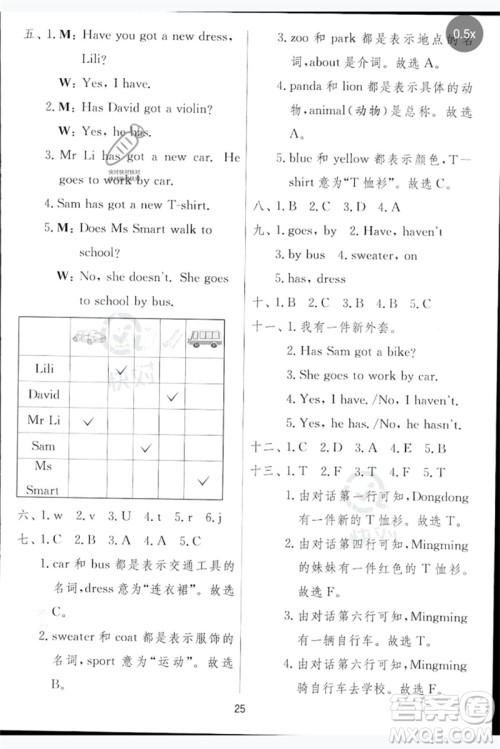 0.5x
五、1. M: Have you got a new dress,
Lili?
W: Yes, I have.
2. M: Has David got a violin?
W: Yes, he has.
3. Mr Li has got a new car. He
goes to work by car.
4. Sam has got a new T-shirt.
5. M: Does Ms Smart walk to
school?
W: No, she doesn't. She goes
to school by bus.
Lili ✓
David ✓
Mr Li ✓
Sam ✓
Ms
Smart ✓
六、1. w 2. v 3. U 4. t 5. g 6. j
七、1. C 2. C 3. A 4. A 5. C
1. car 和 bus 都是表示交通工具的
名词，dress 意为“连衣裙”。故选
C。
2. sweater 和 coat 都是表示服饰的
名词，sport 意为“运动”。故选
C。
3. zoo 和 park 都是表示地点的名
词，about 是介词。故选 A。
4. panda 和 lion 都是表示具体的动
物，animal（动物）是总称。故选
A。
5. blue 和 yellow 都表示颜色，T-
shirt 意为“T 恤衫”。故选 C。
八、1. B 2. C 3. A 4. B
九、1. goes, by 2. Have, haven't
3. by bus 4. sweater, on
5. has, dress
十、1. B 2. C 3. A 4. B 5. C
十一、1. 我有一件新外套。
2. Has Sam got a bike?
3. Mum goes to work by car.
4. Yes, I have. /No, I haven't.
5. Yes, he has. /No, he hasn't.
十二、1. C 2. D 3. A 4. B
十三、1. T 2. F 3. T 4. F
1. 由对话第一行可知，Dongdong
有一件新的 T 恤衫。故选 T。
2. 由对话第四行可知，Mingming
的妹妹有一件红色的 T 恤衫。
故选 F。
3. 由对话第六行可知，Mingming
有一辆自行车。故选 T。
4. 由对话第六行可知，Mingming
骑自行车去学校。故选 F。
25
快对
作业答案圈
MXQE.COM